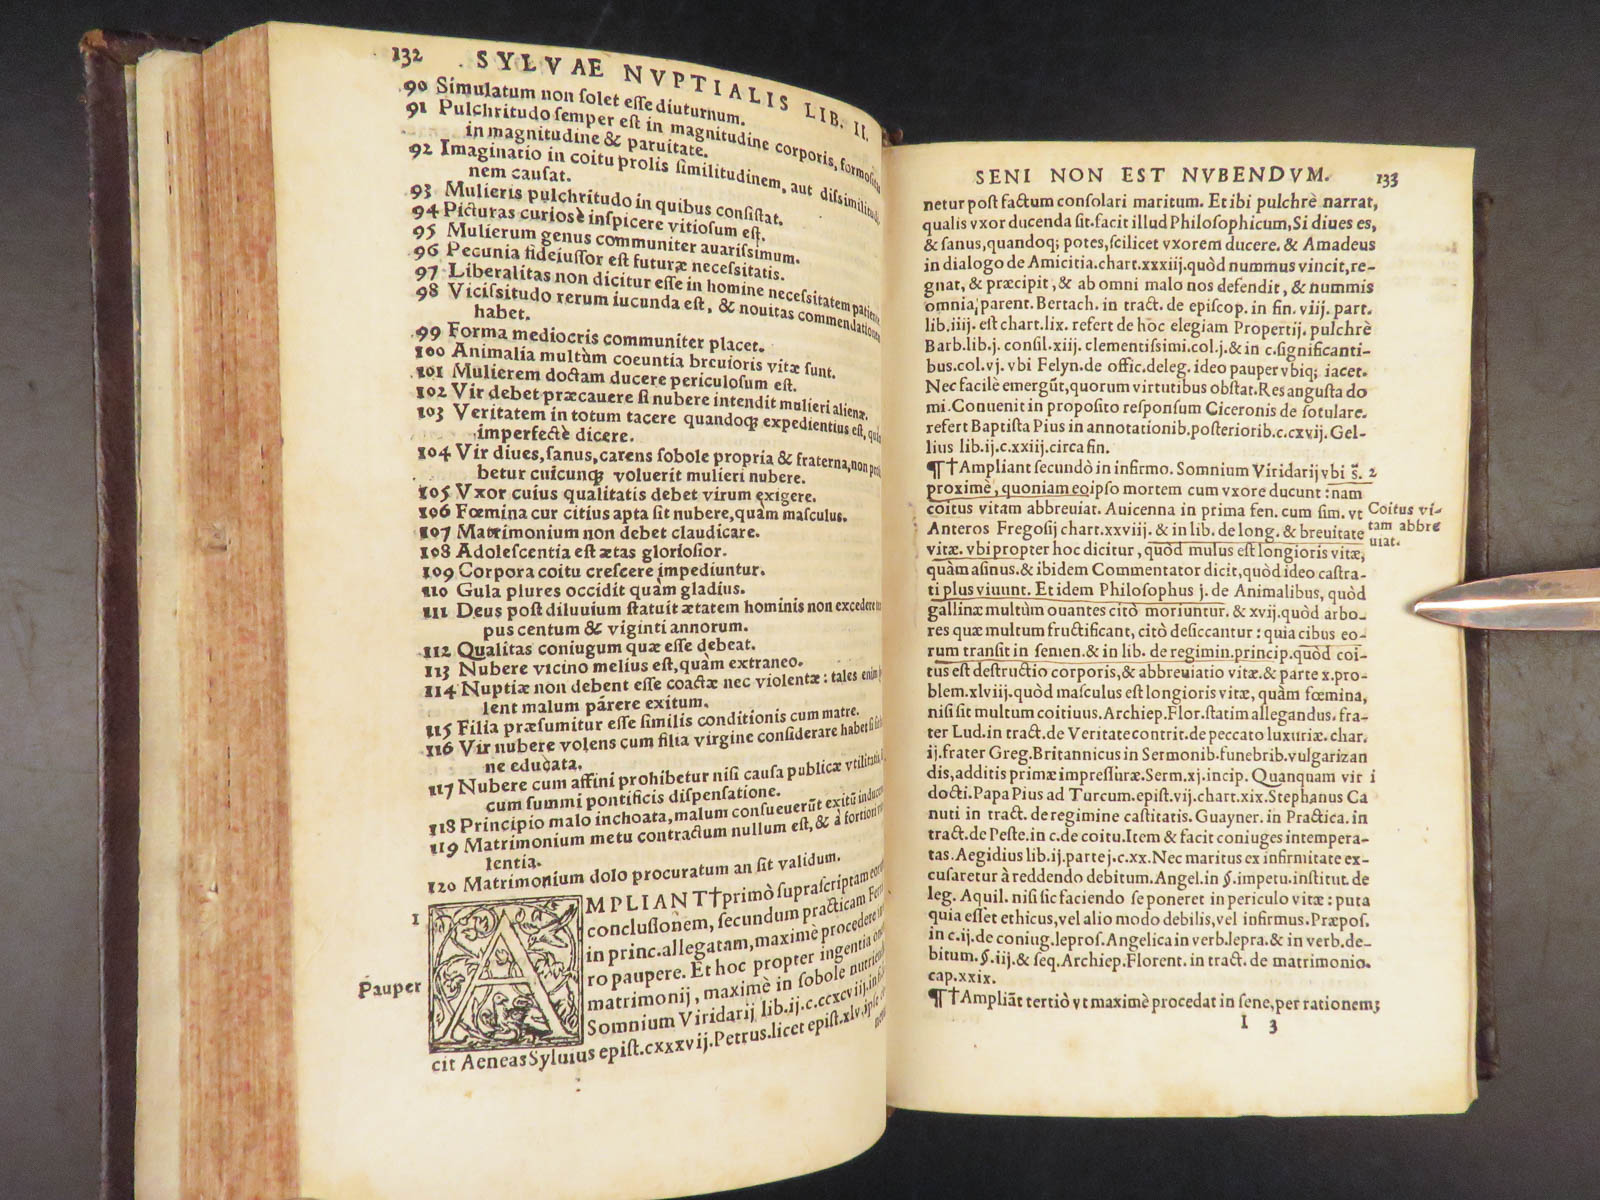 132 SYLVAE NVPTIALIS LIB. II.
90 Simulatum non ſolet eſſe diuturnum.
91 Pulchritudo ſemper eſt in magnitudine corporis, formoſitas
in magnitudine & paruitate.
92 Imaginatio in coitu prolis ſimilitudinem, aut diſſimilitudi
nem cauſat.
93 Mulieris pulchritudo in quibus conſiſtat.
94 Picturas curioſè inſpicere vitioſum eſt.
95 Mulierum genus communiter auariſſimum.
96 Pecunia fideiuſſor eſt futuræ neceſſitatis.
97 Liberalitas non dicitur eſſe in homine neceſſitatem patiente
98 Viciſſitudo rerum iucunda eſt, & nouitas commendationem
habet.
99 Forma mediocris communiter placet.
100 Animalia multùm coeuntia breuioris vitæ ſunt.
101 Mulierem doctam ducere periculoſum eſt.
102 Vir debet præcauere ſi nubere intendit mulieri alienæ.
103 Veritatem in totum tacere quandoq; expedientius eſt, quàm
imperfectè dicere.
104 Vir diues, ſanus, carens ſobole propria & fraterna, non
betur cuicunq; voluerit mulieri nubere.
105 Vxor cuius qualitatis debet virum exigere.
106 Fœmina cur citius apta ſit nubere, quàm maſculus.
107 Matrimonium non debet claudicare.
108 Adoleſcentia eſt ætas glorioſior.
109 Corpora coitu creſcere impediuntur.
110 Gula plures occidit quàm gladius.
111 Deus poſt diluuium ſtatuit ætatem hominis non excedere
pus centum & viginti annorum.
112 Qualitas coniugum quæ eſſe debeat.
113 Nubere vicino melius eſt, quàm extraneo.
114 Nuptiæ non debent eſſe coactæ nec violentæ: tales enim
lent malum parere exitum.
115 Filia præſumitur eſſe ſimilis conditionis cum matre.
116 Vir nubere volens cum filia virgine conſiderare habet ſi
ne educata.
117 Nubere cum affini prohibetur niſi cauſa publicæ vtilitatis
cum ſummi pontificis diſpenſatione.
118 Principio malo inchoata, malum conſueuerūt exitū
119 Matrimonium metu contractum nullum eſt, & à fortiori
lentia.
120 Matrimonium dolo procuratum an ſit validum.
1 AMPLIANT † primò ſupraſcriptam
concluſionem, ſecundum practicam
in princ. allegatam, maximè procedere
ro paupere. Et hoc propter ingentia
Pauper matrimonij, maximè in ſobole
Somnium Viridarij lib. ij. c. ccxcviij.
cit Aeneas Syluius epiſt. cxxxvij. Petrus. licet epiſt. xlv.
SENI NON EST NVBENDVM. 133
netur poſt factum conſolari maritum. Et ibi pulchrè narrat,
qualis vxor ducenda ſit. facit illud Philoſophicum, Si diues es,
& ſanus, quandoq; potes, ſcilicet vxorem ducere. & Amadeus
in dialogo de Amicitia. chart. xxxiij. quòd nummus vincit, re-
gnat, & præcipit, & ab omni malo nos defendit, & nummis
omnia parent. Bertach. in tract. de epiſcop. in fin. viij. part.
lib. iiij. eſt chart. lix. refert de hoc elegiam Propertij. pulchrè
Barb. lib. j. conſil. xij. clementiſſimi. col. j. & in c. ſignificanti-
bus. col. vj. vbi Felyn. de offic. deleg. ideo pauper vbiq; iacet.
Nec facilè emergūt, quorum virtutibus obſtat. Res anguſta do
mi. Conuenit in propoſito reſponſum Ciceronis de ſotulare.
refert Baptiſta Pius in annotationib. poſteriorib. c. cxvij. Gel-
lius lib. ij. c. xxiij. circa fin.
¶ † Ampliant ſecundò in infirmo. Somnium Viridarij vbi ſ. 2
proximè, quoniam eo ipſo mortem cum vxore ducunt: nam
coitus vitam abbreuiat. Auicenna in prima fen. cum ſim. vt Coitus vi-
Anteros Fregoſij chart. xxviij. & in lib. de long. & breuitate tam abbre
vitæ. vbi propter hoc dicitur, quòd mulus eſt longioris vitæ, uiat.
quàm aſinus. & ibidem Commentator dicit, quòd ideo caſtra-
ti plus viuunt. Et idem Philoſophus j. de Animalibus, quòd
gallinæ multùm ouantes citò moriuntur. & xvij. quòd arbo-
res quæ multum fructificant, citò deſiccantur: quia cibus eo-
rum tranſit in ſemen. & in lib. de regimin. princip. quòd coi-
tus eſt deſtructio corporis, & abbreuiatio vitæ. & parte x. pro-
blem. xlviij. quòd maſculus eſt longioris vitæ, quàm fœmina,
niſi ſit multum coitiuus. Archiep. Flor. ſtatim allegandus. fra-
ter Lud. in tract. de Veritate contrit. de peccato luxuriæ. char.
ij. frater Greg. Britannicus in Sermonib. funebrib. vulgarizan
dis, additis primæ impreſſuræ. Serm. xj. incip. Quanquam vir i
docti. Papa Pius ad Turcum. epiſt. vij. chart. xix. Stephanus Ca
nuti in tract. de regimine caſtitatis. Guayner. in Practica. in
tract. de Peſte. in c. de coitu. Item & facit coniuges intempera-
tas. Aegidius lib. ij. parte j. c. xx. Nec maritus ex infirmitate ex-
cuſaretur à reddendo debitum. Angel. in §. impetu. inſtitut. de
leg. Aquil. niſi ſic faciendo ſe poneret in periculo vitæ: puta
quia eſſet ethicus, vel alio modo debilis, vel infirmus. Præpoſ.
in c. ij. de coniug. leproſ. Angelica in verb. lepra. & in verb. de-
bitum. §. iij. & ſeq. Archiep. Florent. in tract. de matrimonio.
cap. xxix.
¶ † Ampliāt tertiò vt maximè procedat in ſene, per rationem
I 3